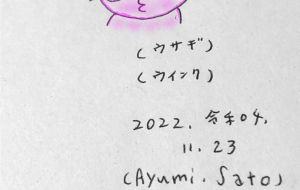 (ウサギ)
(ウインク)
2022. 令和04.
11. 23
(Ayumi. Sato)